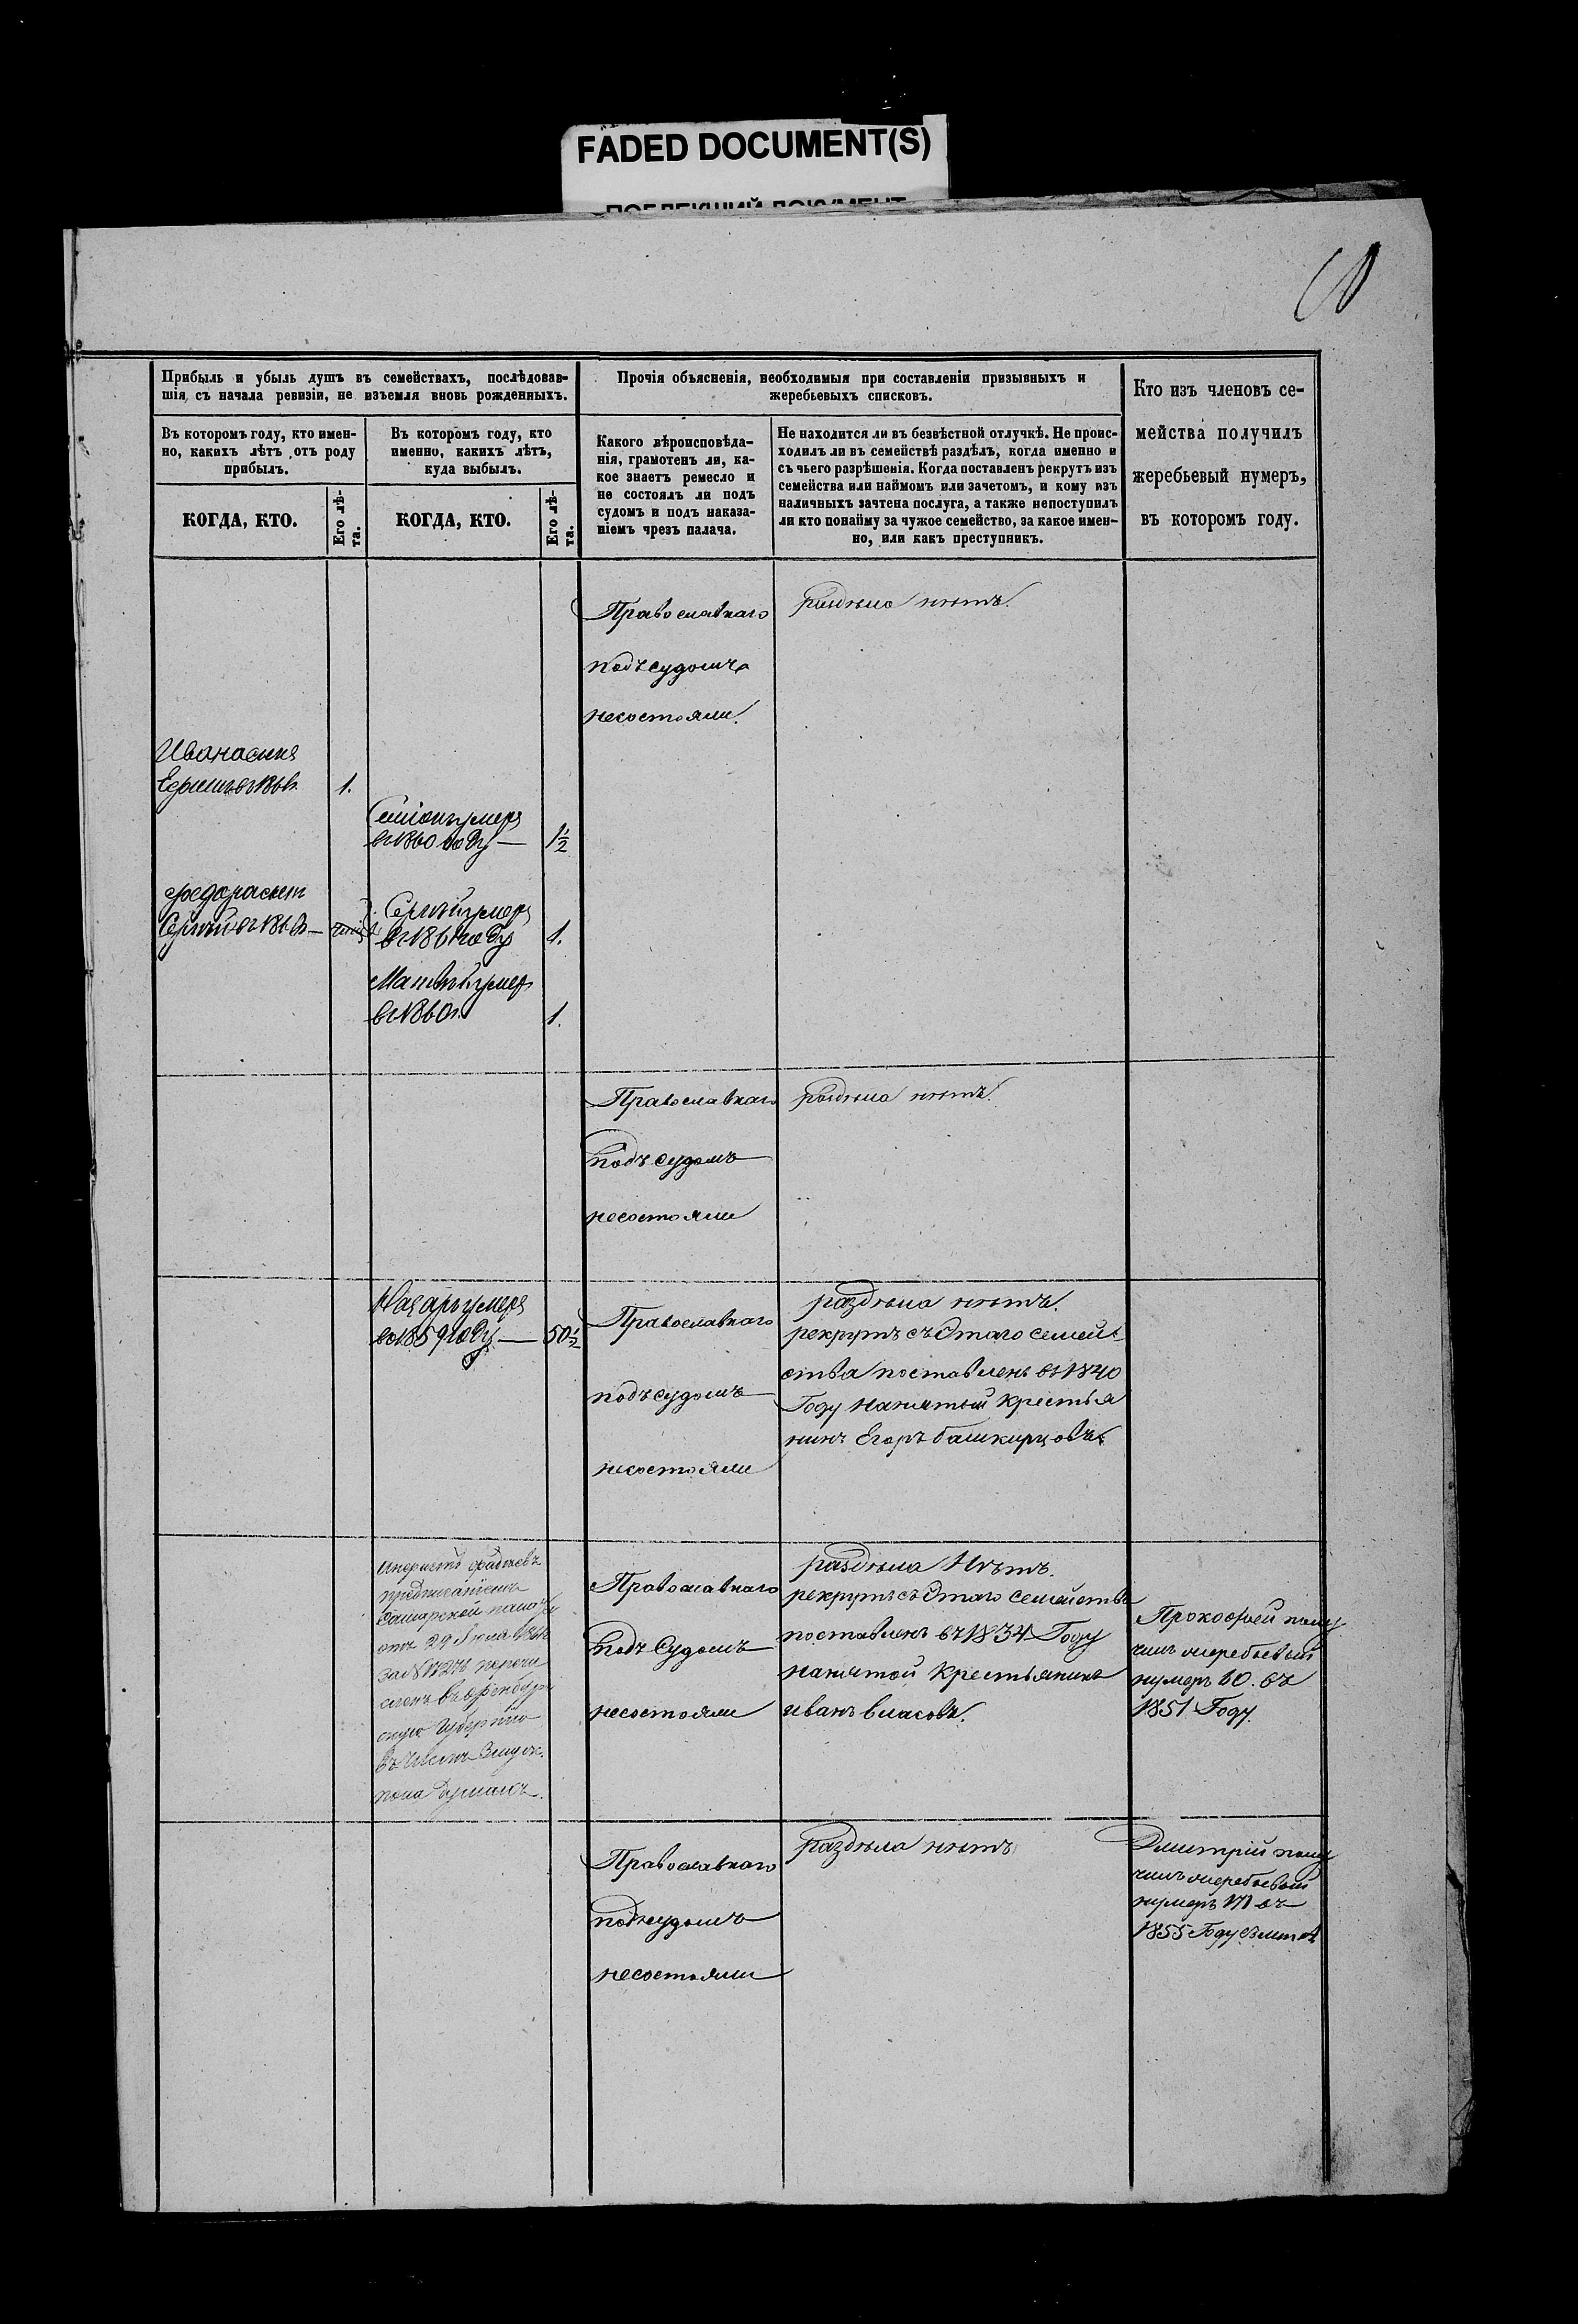 FADED DOCUMENT(S)
Прибыль и убыль душъ въ семействахъ, послѣдовав-
шія съ начала ревизіи, не изъемля вновь рожденныхъ.
Прочія объясненія, необходимыя при составленіи призывныхъ и
жеребьевыхъ списковъ.
Кто изъ членовъ се-
мейства получилъ
жеребьевый нумеръ,
въ которомъ году.
Въ которомъ году, кто имен-
но, какихъ лѣтъ отъ роду
прибылъ.
Въ которомъ году, кто
именно, какихъ лѣтъ,
куда выбылъ.
Какого вѣроисповѣда-
нія, грамотенъ ли, ка-
кое знаетъ ремесло и
не состоялъ ли подъ
судомъ и подъ наказа-
ніемъ чрезъ палача.
Не находится ли въ безвѣстной отлучкѣ. Не проис-
ходилъ ли въ семействѣ раздѣлъ, когда именно и
съ чьего разрѣшенія. Когда поставленъ рекрутъ изъ
семейства или наймомъ или зачетомъ, и кому изъ
наличныхъ зачтена послуга, а также непоступилъ
ли кто понайму за чужое семейство, за какое имен-
но, или какъ преступникъ.
КОГДА, КТО.
Его лѣ-
та.
КОГДА, КТО.
Его лѣ-
та.
Православнаго
подъ судомъ
несостояли.
раздѣла нѣтъ.
Ивана сынъ
1.
умеръ
въ 1860 году — 1½
Сергѣй умеръ
году 1.
Матвѣй умеръ
въ 1860г. 1.
Православнаго
подъ судомъ
несостояли
раздѣла нѣтъ.
Назаръ умеръ
въ 1859 году — 50½
Православнаго
подъ судомъ
несостояли
раздѣла нѣтъ.
рекрутъ съ Этаго семей
ства поставленъ въ 1840
Году нанятый крестья
нинъ Егоръ башкирцовъ
предписаніемъ
Самарской палаты
отъ 29
губернію
въ число
Православнаго
подъ Судомъ
несостояли
раздѣла Нѣтъ.
рекрутъ съ Этаго семейства
поставленъ въ 1834 Году
нанятой крестьянинъ
иванъ власовъ.
Прокофей полу
чилъ жеребьевый
нумеръ 10. въ
1851 Году.
Православнаго
подъ судомъ
несостояли
раздѣла нѣтъ
Дмитрій полу
чилъ жеребьевый
нумеръ въ
1855 Году